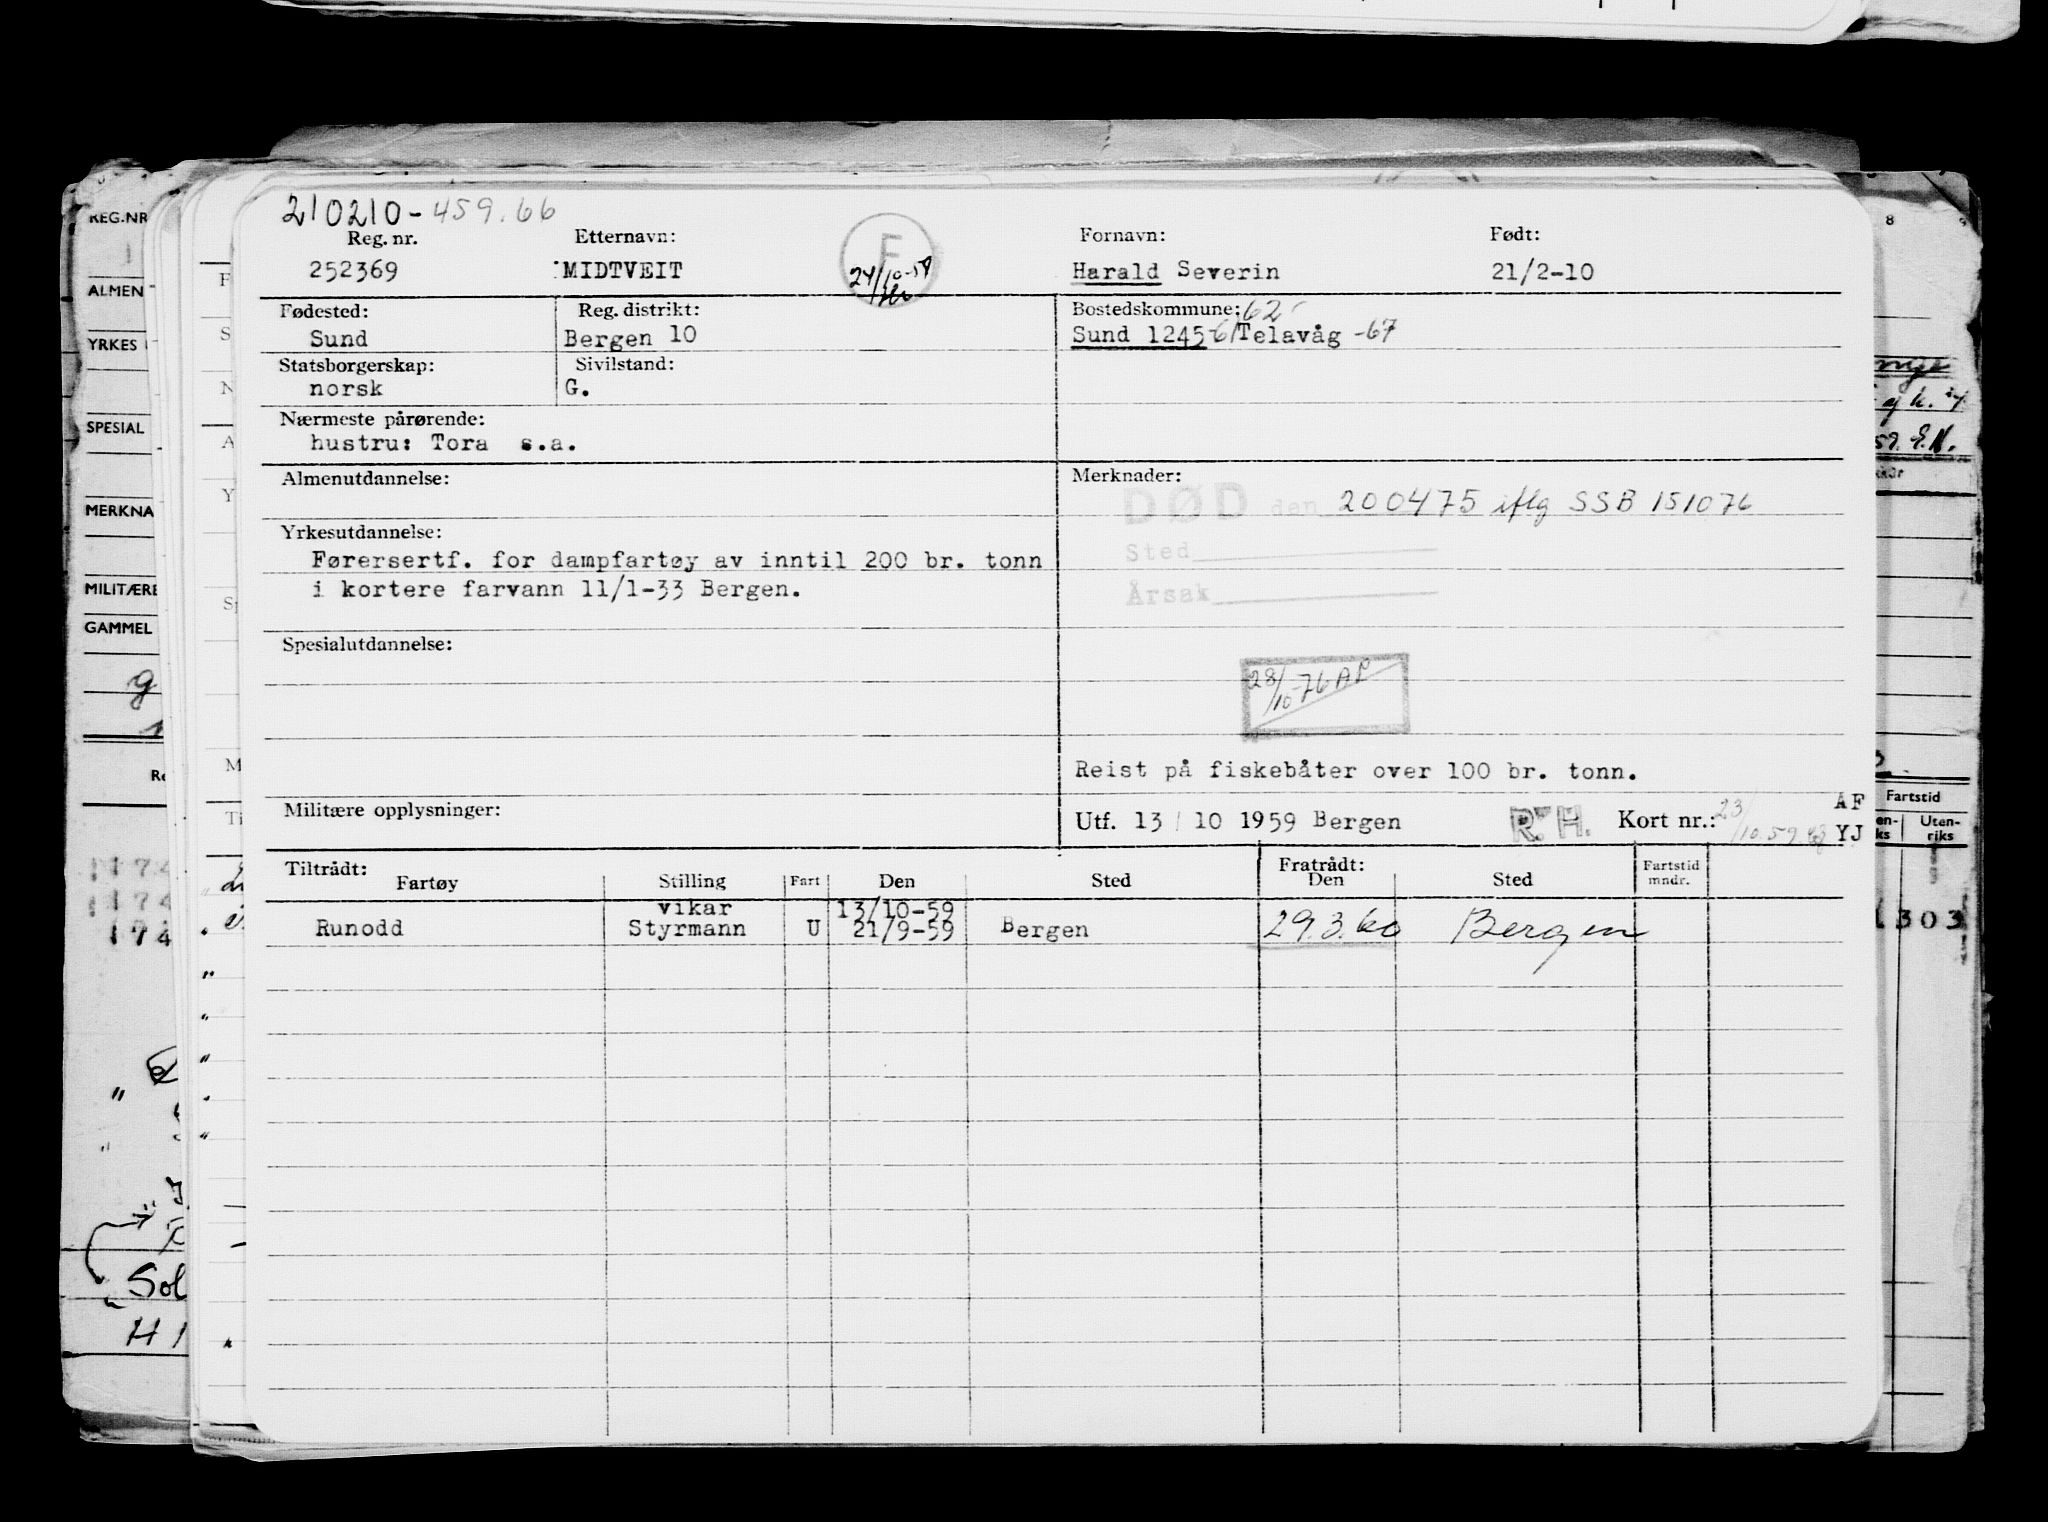 210210-459.66
Reg. nr. Etternavn: Fornavn: Født:
252369 MIDTVEIT F 24/10-59 Harald Severin 21/2-10
Fødested: Reg. distrikt: Bostedskommune: 62
Sund Bergen 10 Sund 1245-61 Telavåg -67
Statsborgerskap: Sivilstand:
norsk G.
Nærmeste pårørende:
hustru: Tora s.a.
Almenutdannelse: Merknader:
DØD den 200475 iflg SSB 151076
Yrkesutdannelse:
Sted
Førersertf. for dampfartøy av inntil 200 br. tonn
i kortere farvann 11/1-33 Bergen.
Årsak
Spesialutdannelse:
28/10-76 AP
Reist på fiskebåter over 100 br. tonn.
Militære opplysninger: Utf. 13/10 1959 Bergen R.H. Kort nr.: 23/10.59 AF
YJ
Tiltrådt: Fratrådt:
Fartøy Stilling Fart Den Sted Den Sted Fartstid mndr.
vikar 13/10-59
Runodd Styrmann U 21/9-59 Bergen 29.3.60 Bergen
REG.NR
ALMEN
YRKES
SPESIAL
MERKNA
MILITÆRE
GAMMEL
Sol
H
8
Fartstid
Uten-
riks
303